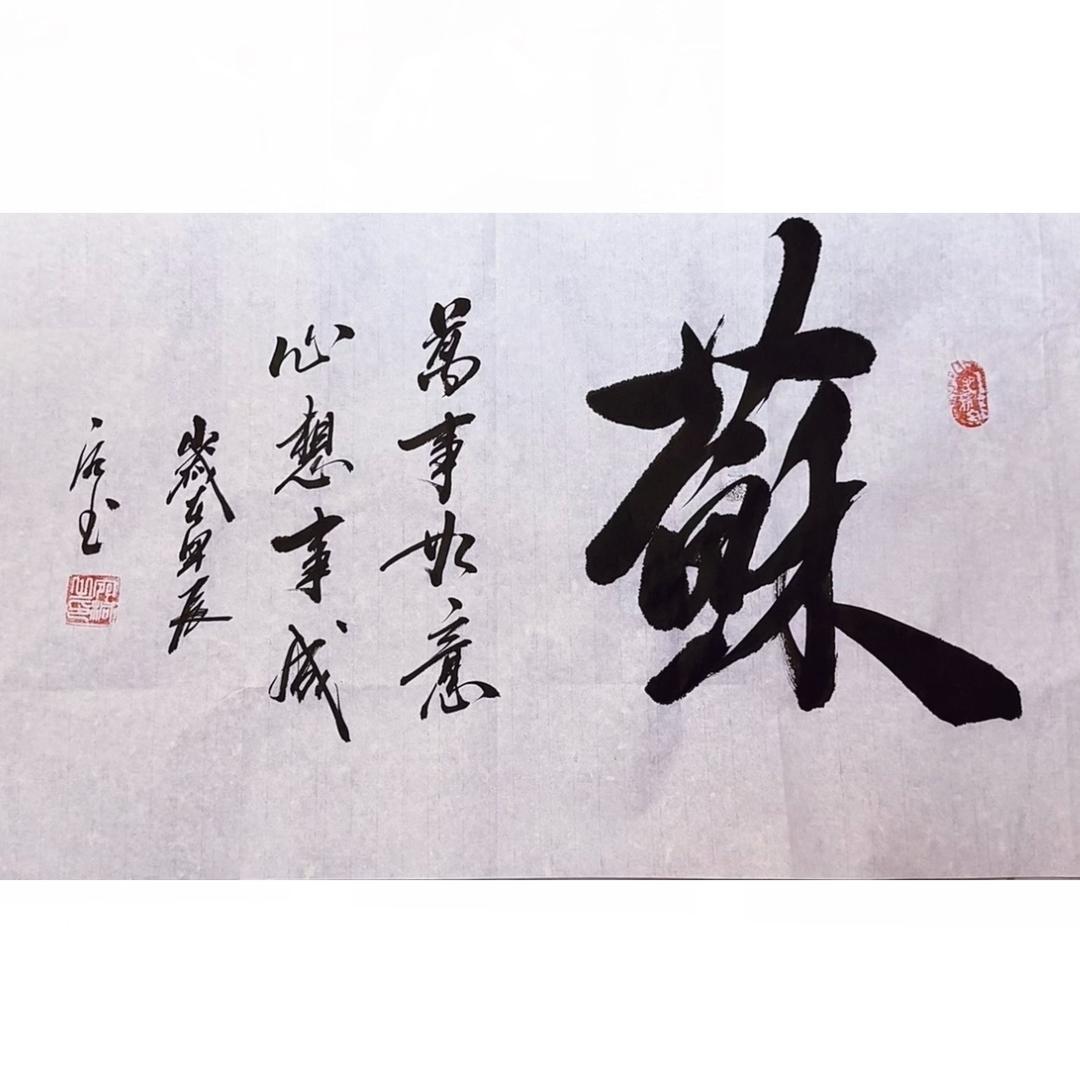 蘇
萬事如意
心想事成
歲在甲辰